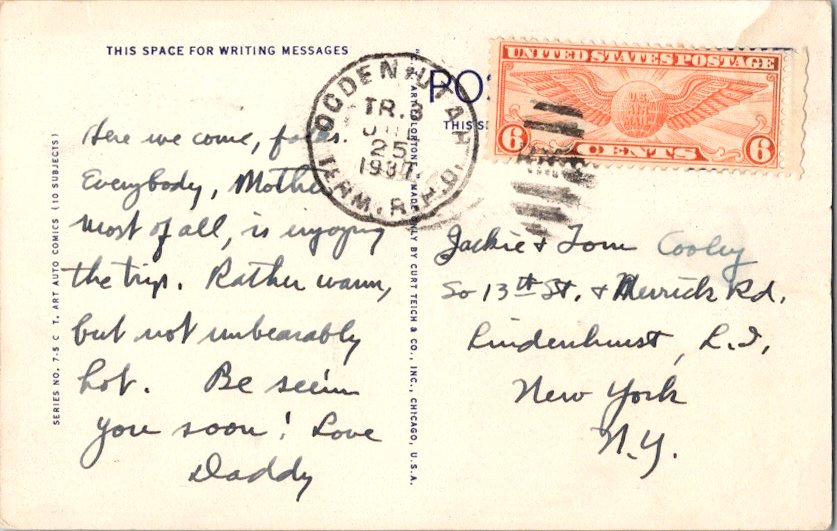 THIS SPACE FOR WRITING MESSAGES
Here we come, folks.
Everybody, Mother
most of all, is enjoying
the trip. Rather warm,
but not unbearably
hot. Be seein
you soon! Love
Daddy
SERIES NO. 7-5 C T. ART AUTO COMICS (10 SUBJECTS)
MADE ONLY BY CURT TEICH & CO., INC., CHICAGO, U.S.A.
OGDEN UTAH
TR.
25
1937
TERM. R.P.O.
PO
THIS S
UNITED STATES POSTAGE
U.S.
AIR
MAIL
6 CENTS 6
Jackie & Tom Cooley
So 13th St. & Merrick Rd.
Lindenhurst, L.I,
New York
N.Y.